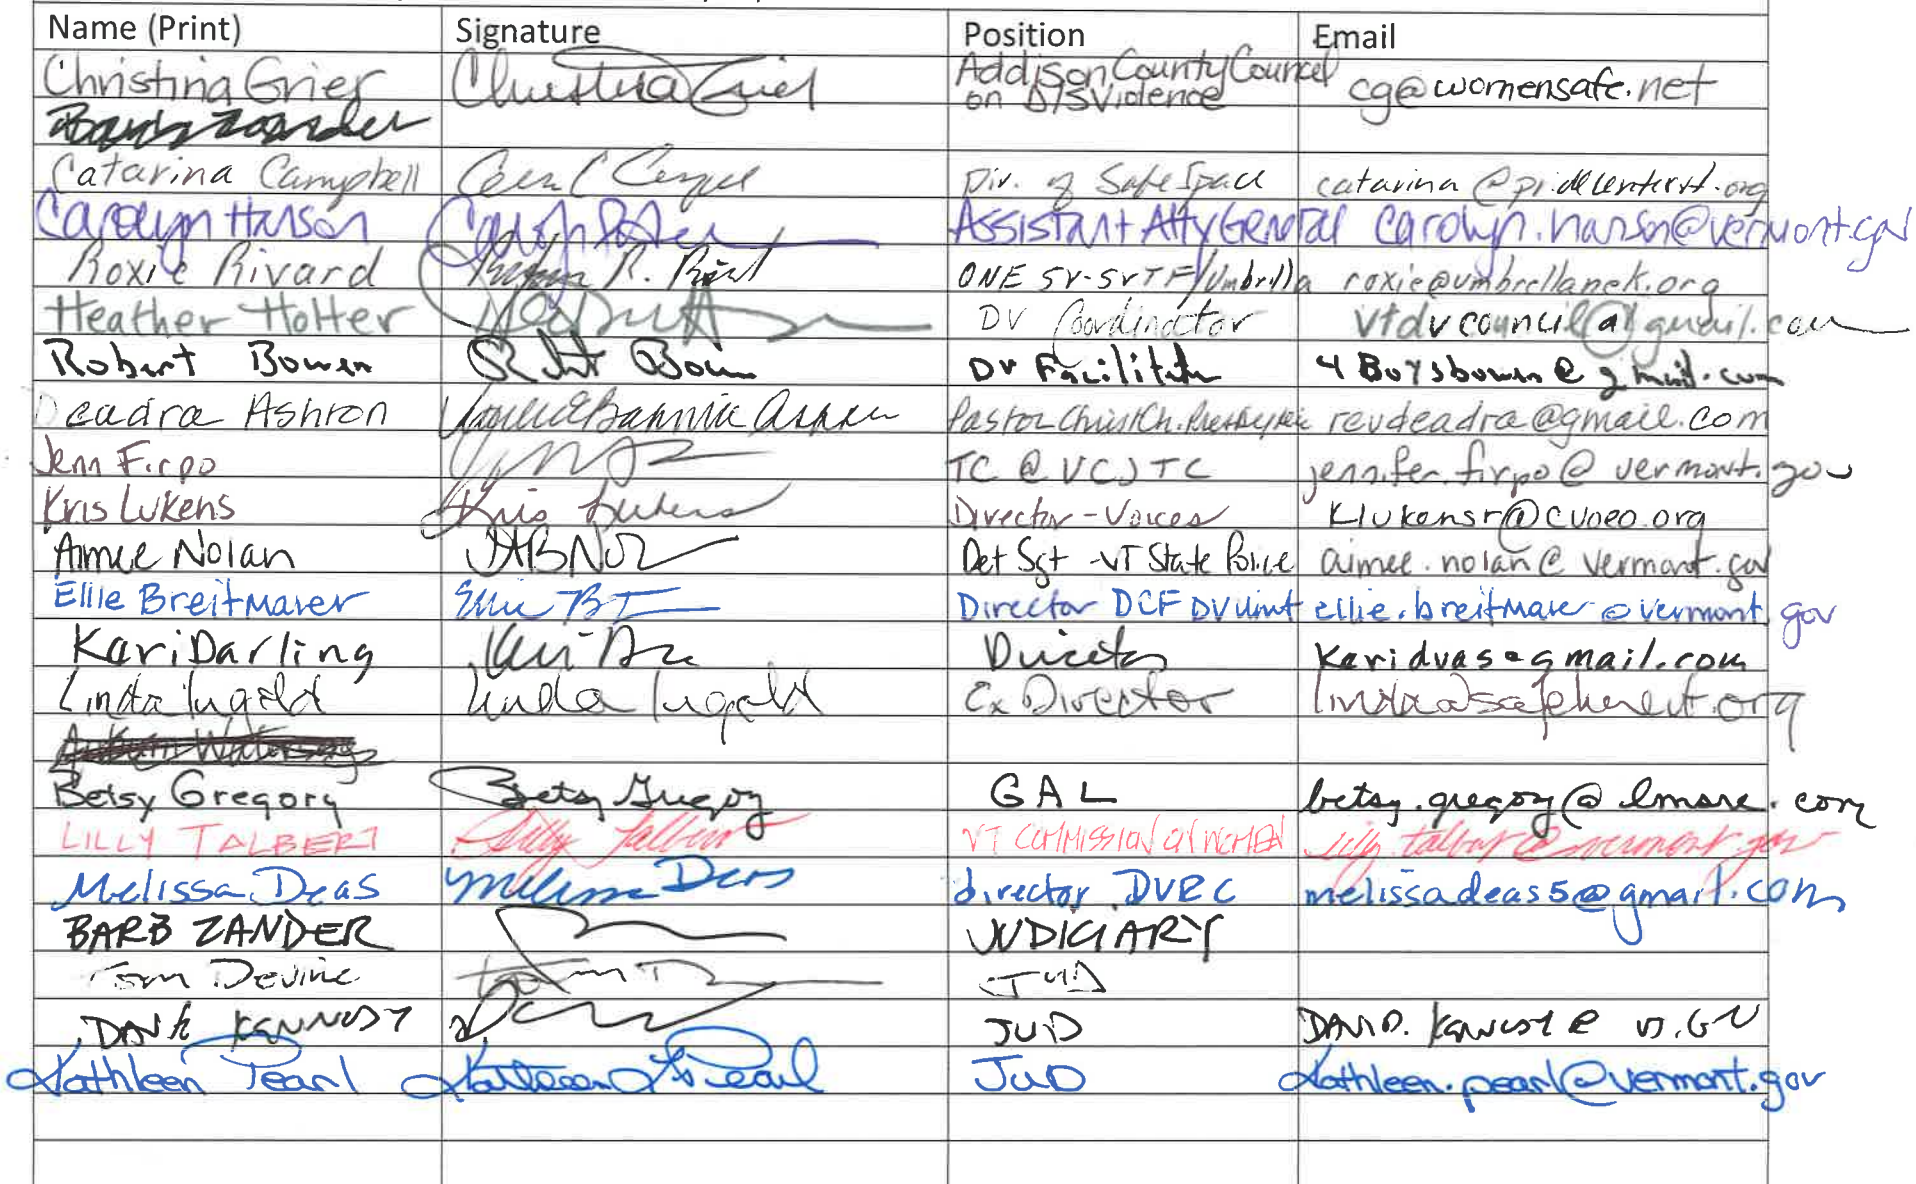 Name (Print) Signature Position Email
Christina Grier Christina Grier Addison County Councel on D/SViolence cg@womensafe.net
Barb Zander
Catarina Campbell Div. of Safe Space catarina@pridecentervt.org
Carolyn Hanson Assistant Atty General carolyn.hanson@vermont.gov
Roxie Rivard R. ONE SV-SVTF/Umbrella roxie@umbrellanek.org
Heather Holter DV Coordinator vtdvcouncil@gmail.com
Robert Bowen Robert Bowen DV Facilitator 4Boysbowen@gmail.com
Deadra Ashton Pastor Christ Ch. Presbyterian revdeadra@gmail.com
Jenn Firpo TC @ VCJTC jennifer.firpo@vermont.gov
Kris Lukens Kris Lukens Director - Voices klukensr@cvoeo.org
Aimee Nolan Det Sgt - VT State Police aimee.nolan@vermont.gov
Ellie Breitmaier Director DCF DV unit ellie.breitmaier@vermont.gov
Kari Darling Director karidvas@gmail.com
Linda Ingold Linda Ingold Ex Director
Betsy Gregory Betsy Gregory GAL
LILLY TALBERT Lilly Talbert VT COMMISSION ON WOMEN lilly.talbert@vermont.gov
Melissa Deas Melissa Deas director DVRC melissadeas5@gmail.com
BARB ZANDER JUDICIARY
Tom Devine JUD
DAVE KENNEDY JUD
Kathleen Pearl Kathleen Pearl JUD Kathleen.pearl@vermont.gov